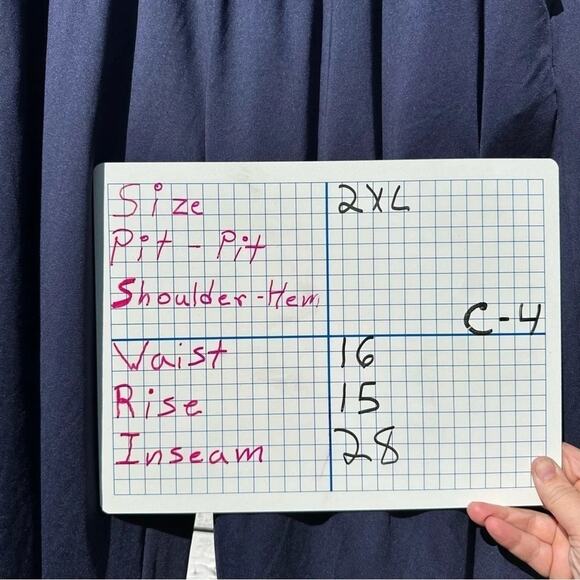 Size 2XL
Pit - Pit
Shoulder-Hem
C-4
Waist 16
Rise 15
Inseam 28